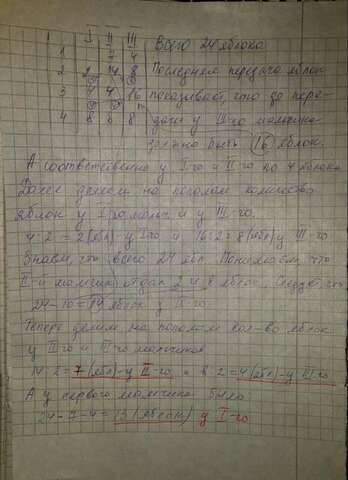 I II III Всего 24 яблока
1 7 4
2 2 14 8 Последняя передача яблок
3 4 4 16 показывает, что до пере-
4 8 8 8 дачи у III-го мальчика
должно быть 16 яблок.
А соответственно у I-го и II-го по 4 яблока
Далее делем на пополам количество
яблок у I-го мальч. и у III-го.
4:2=2(ябл)-у I-го и 16:2=8(ябл)у III-го
Знаем, что всего 24 ябл. Понимаем, что
II-й мальчик отдал 2 и 8 яблок. Следует
24-10=14 яблок у II-го.
Теперь делим на пополам кол-во яблок
у II-го и III-го мальчиков
14:2=7(ябл)-у II-го и 8:2=4(ябл)-у III-го
А у первого мальчика было
24-7-4=13(яблок) у I-го